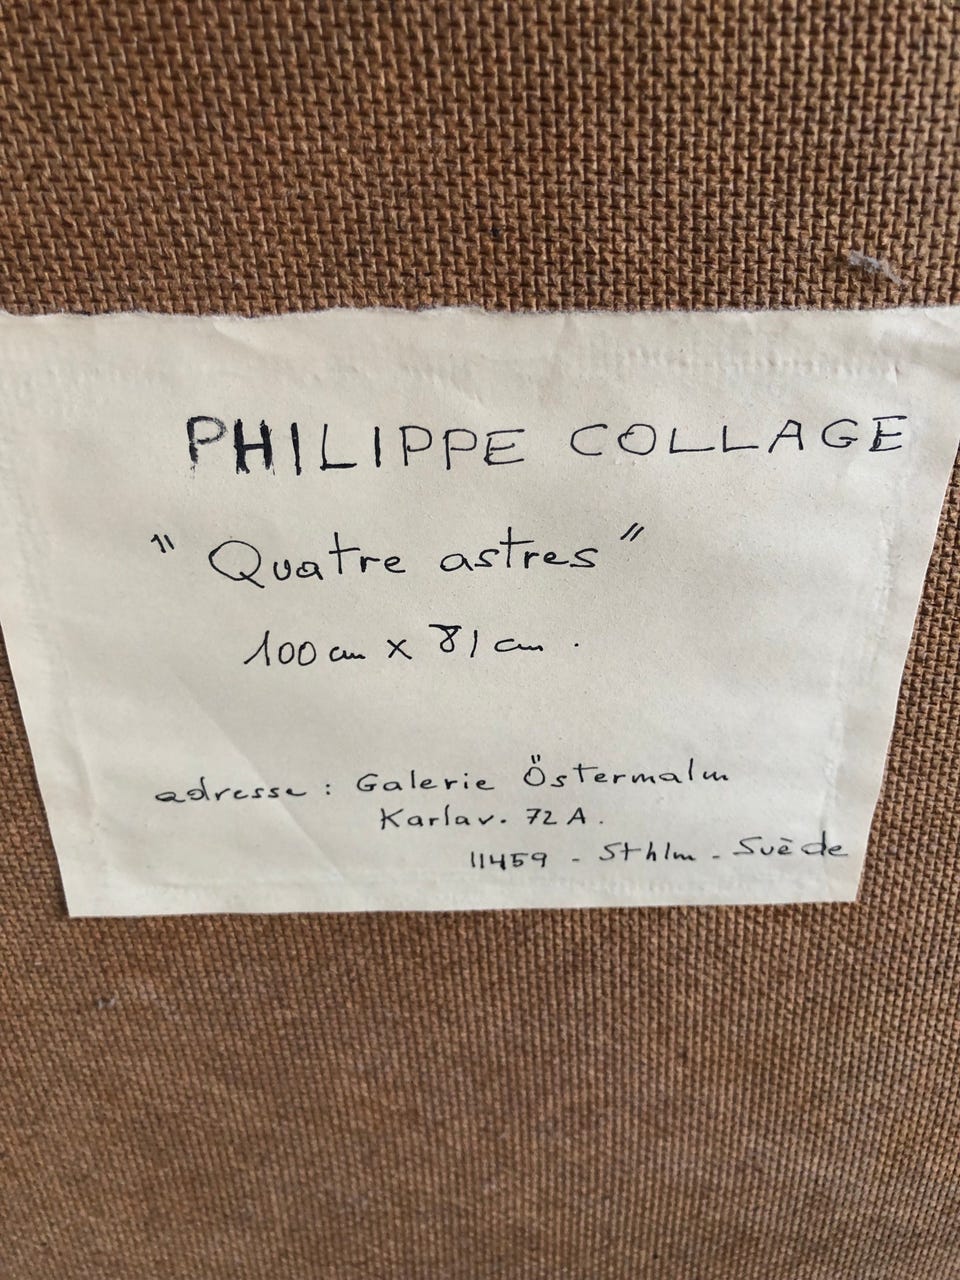 PHILIPPE COLLAGE
"Quatre astres"
100 cm x 81 cm.
adresse : Galerie Östermalm
Karlav. 72 A.
11459 - Sthlm - Suède